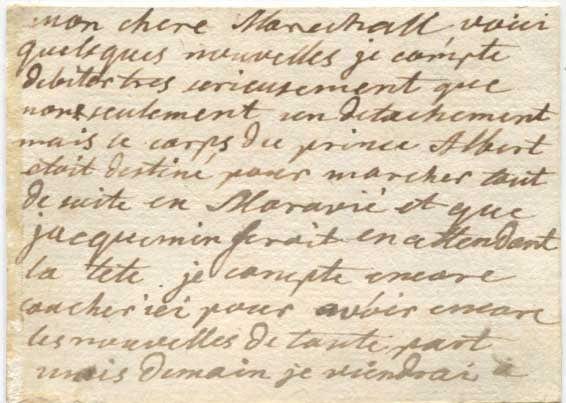 mon chere Marechall voici
quelsques nouvelles je compte
debiter tres serieusement que
non seulement un detachement
mais le corps du prince Albert
etoit destiné pour marcher tout
de suite en Moravie et que
jacquemin feroit en attendant
la tete. je compte encore
coucher ici pour avoir encore
les nouvelles de toute part
mais demain je viendrai a